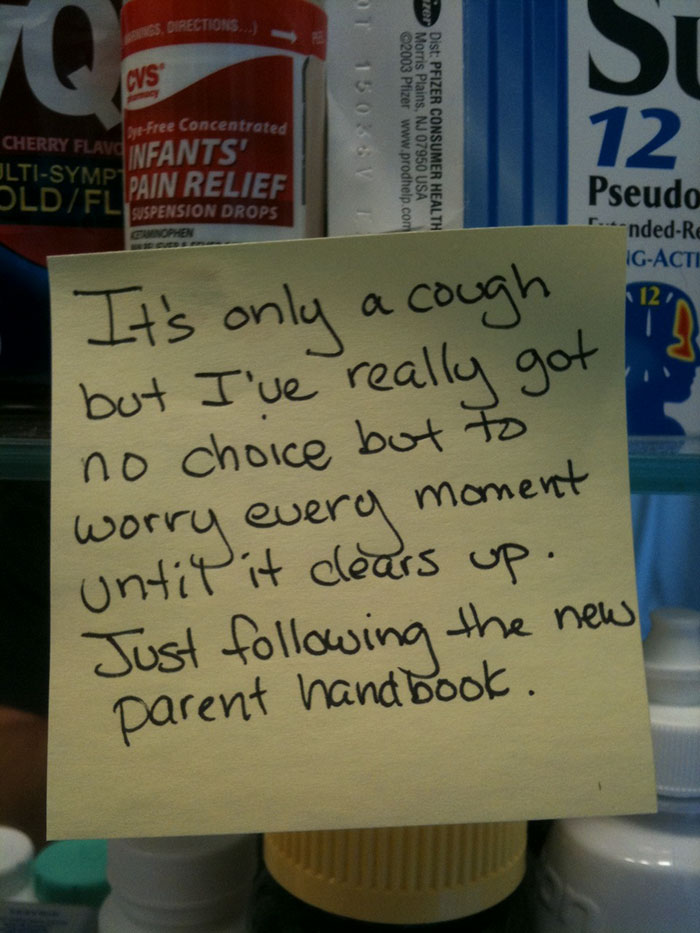 CVS
pharmacy
Dye-Free Concentrated
INFANTS'
PAIN RELIEF
SUSPENSION DROPS
ACETAMINOPHEN
CHERRY FLAVO
OLD/FL
Dist: PFIZER CONSUMER HEALTH
Morris Plains, NJ 07950 USA
©2003 Pfizer www.prodhelp.com
Su
12
Pseudo
12
It's only a cough
but I've really got
no choice but to
worry every moment
until it clears up.
Just following the new
parent handbook.